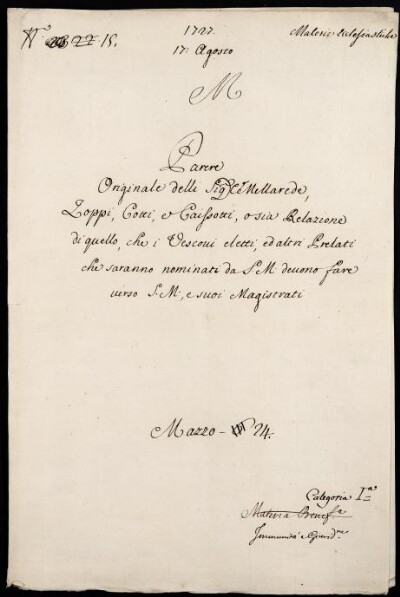 N.º 22 15.
1727.
17: Agosto
Materie Ecclesiastiche
M
Parere
Originale delli Sig.ri C.te Mellarede,
Zoppi, Cotti, e Caissotti, o sia Relazione
di quello, che i Vescovi eletti, ed altri Prelati
che saranno nominati da S. M. devono fare
verso S. M., e suoi Magistrati
Mazzo - 24.
Categoria I.ma
Materia Benef.a
Immunità e Giurisd.ne